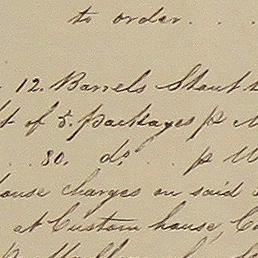 to order . . .
12. Barrels Stout
t of 8. packages p
. . 80. do . . p
house charges on said
at Custom house,